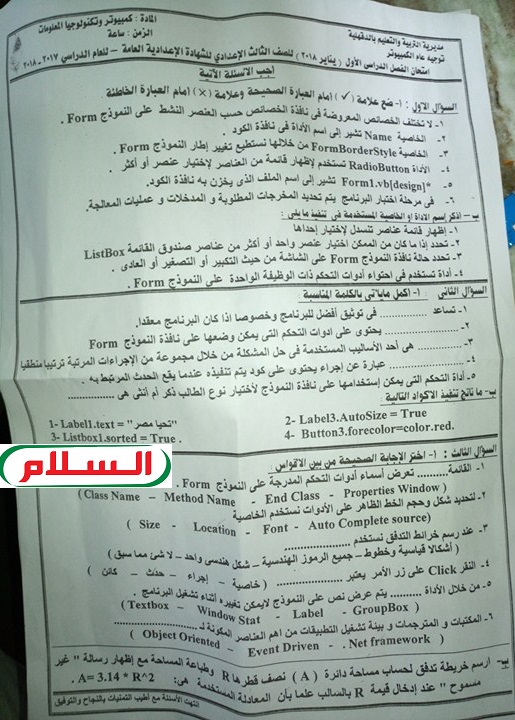 مديرية التربية والتعليم بالدقهلية
توجيه عام الكمبيوتر
المادة: كمبيوتر وتكنولوجيا المعلومات
الزمن: ساعة
امتحان الفصل الدراسي الأول ( يناير ٢٠١٨ ) للصف الثالث الإعدادي للشهادة الإعدادية العامة – للعام الدراسي ٢٠١٧ - ٢٠١٨
اجب الاسئلة الآتية
السؤال الاول : ١- ضع علامة ( ✓ ) امام العبارة الصحيحة وعلامة ( × ) امام العبارة الخاطئة
١- لا تختلف الخصائص المعروضة فى نافذة الخصائص حسب العنصر النشط على النموذج Form .
٢- الخاصية Name تشير إلى اسم الأداة فى نافذة الكود .
٣- الخاصية FormBorderStyle من خلالها نستطيع تغيير إطار النموذج Form .
٤- الأداة RadioButton تستخدم لإظهار قائمة من العناصر لإختيار عنصر أو أكثر .
٥- Form1.vb[design]* تشير إلى اسم الملف الذى يخزن به نافذة الكود.
٦- فى مرحلة اختبار البرنامج يتم تحديد المخرجات المطلوبة و المدخلات و عمليات المعالجة.
ب – اذكر إسم الاداة أو الخاصية المستخدمة فى تنفيذ ما يلى :
١- إظهار قائمة عناصر تنسدل لإختيار إحداها
٢- تحدد إذا ما كان من الممكن اختيار عنصر واحد أو أكثر من عناصر صندوق القائمة ListBox
٣- تحدد حالة نافذة النموذج Form على الشاشة من حيث التكبير أو التصغير أو العادى .
٤- أداة تستخدم فى احتواء أدوات التحكم ذات الوظيفة الواحدة على النموذج Form .
السؤال الثانى : ١- اكمل ماياتى بالكلمة المناسبة
١- تساعد .............. فى توثيق أفضل للبرنامج وخصوصا اذا كان البرنامج معقدا.
٢- .............. يحتوى على ادوات التحكم التى يمكن وضعها على نافذة النموذج Form
٣- .............. هى أحد الأساليب المستخدمة فى حل المشكلة من خلال مجموعة من الإجراءات المرتبة ترتيبا منطقيا
٤- .............. عبارة عن إجراء يحتوى على كود يتم تنفيذه عندما يقع الحدث المرتبط به .
٥- أداة التحكم التى يمكن إستخدامها على نافذة النموذج لأختيار نوع الطالب ذكر أم أنثى هى ..............
ب- ما ناتج تنفيذ الاكواد التالية :
1- Label1.text = "تحيا مصر"
2- Label3.AutoSize = True
3- Listbox1.sorted = True .
4- Button3.forecolor=color.red.
السلام
السؤال الثالث : ١- اختر الإجابة الصحيحة من بين الاقواس
١- القائمة.......... تعرض أسماء أدوات التحكم المدرجة على النموذج Form .
( Class Name – Method Name - End Class - Properties Window )
٢- لتحديد شكل وحجم الخط الظاهر على الأدوات نستخدم الخاصية
( Size - Location - Font - Auto Complete source)
٣- عند رسم خرائط التدفق نستخدم ..............
( أشكالا قياسية وخطوط – جميع الرموز الهندسية – شكل هندسى واحد – لا شئ مما سبق )
٤- النقر Click على زر الأمر يعتبر .............. ( خاصية – إجراء – حدث – كائن )
٥- من خلال الأداة .......... يتم عرض نص على النموذج لايمكن تغييره أثناء تشغيل البرنامج .
( Textbox – Window Stat - Label - GroupBox )
٦- المكتبات و المترجمات و بيئة تشغيل التطبيقات من اهم العناصر المكونة لـ ..............
( Object Oriented – Event Driven - . Net framework )
ب- ارسم خريطة تدفق لحساب مساحة دائرة ( A ) نصف قطرها R وطباعة المساحة مع إظهار رسالة " غير
مسموح " عند إدخال قيمة R بالسالب علما بأن المعادلة المستخدمة هى: A= 3.14 * R^2 .
انتهت الأسئلة مع أطيب التمنيات بالنجاح والتوفيق